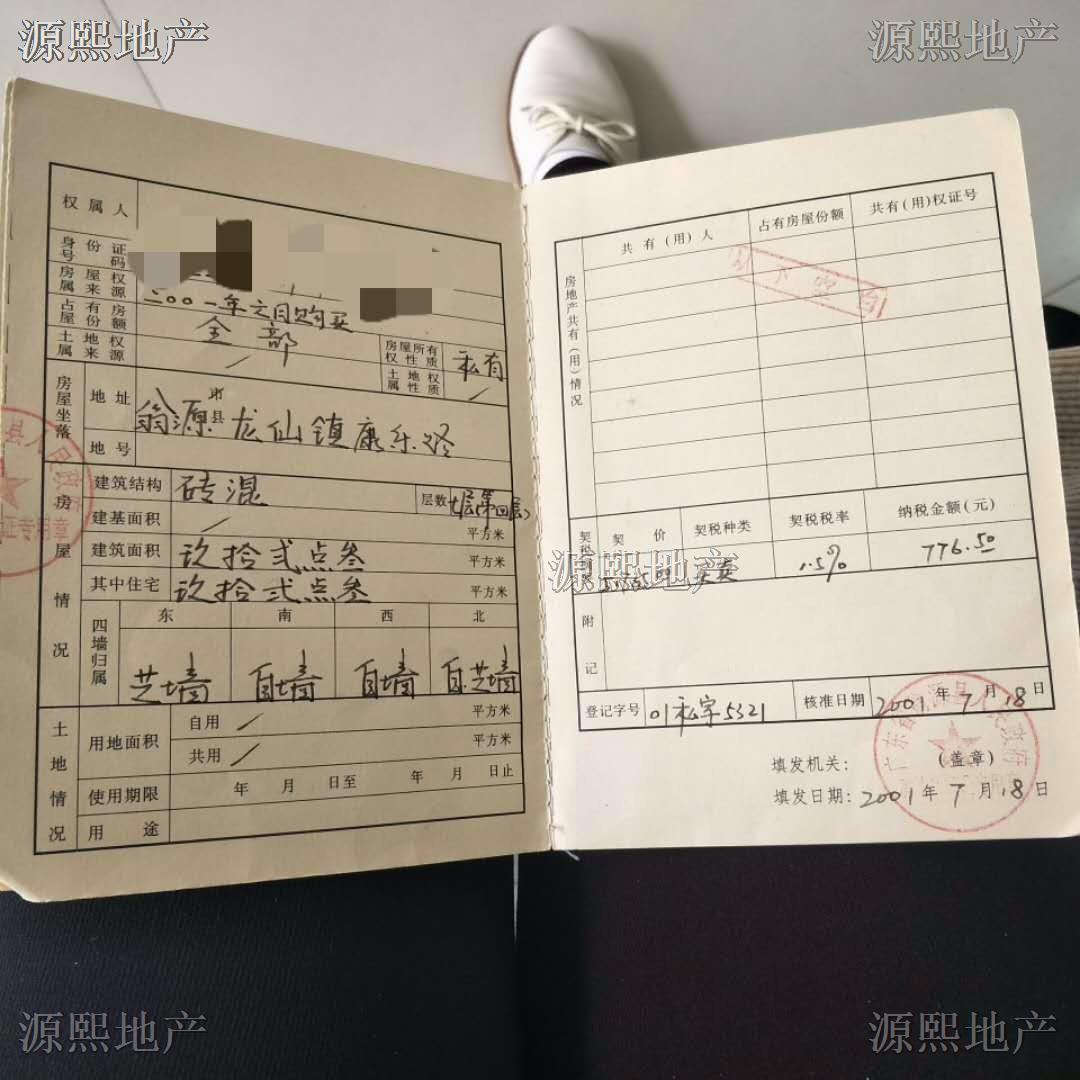 源熙地产
源熙地产
权属人
身份证号码
房屋权属来源
二00一年六月购买
占有房屋份额
全部
房屋所有权性质
私有
土地权属来源
/
土地权属性质
/
房屋坐落
地址
翁源
市
县
龙仙镇康乐路
地号
房屋情况
建筑结构
砖混
层数
七层(第四层)
建基面积
/
平方米
建筑面积
玖拾贰点叁
平方米
其中住宅
玖拾贰点叁
平方米
四墙归属
东
南
西
北
芝墙
自墙
自墙
自芝墙
土地情况
用地面积
自用
/
平方米
共用
/
平方米
使用期限
年 月 日至 年 月 日止
用途
房地产共有(用)情况
共有(用)人
占有房屋份额
共有(用)权证号
契价
契税种类
契税税率
纳税金额(元)
买卖
1.5%
776.50
源熙地产
附记
登记字号
01私字5321
核准日期
2001年7月18日
填发机关:
(盖章)
填发日期:2001年7月18日
源熙地产
源熙地产